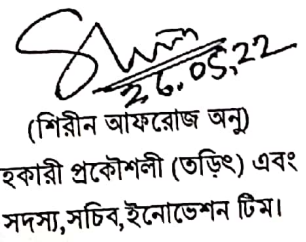 26.05.22
(শিরীন আফরোজ অনু)
হকারী প্রকৌশলী (তড়িৎ) এবং
সদস্য,সচিব,ইনোভেশন টিম।